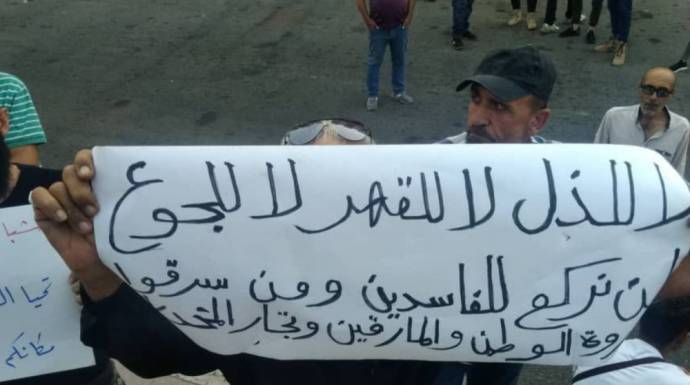 لا للذل لا للقهر لا للجوع
لن نركع للفاسدين ومن سرقوا
ثروة الوطن والمارقين وتجار
تحيا
مكانكم